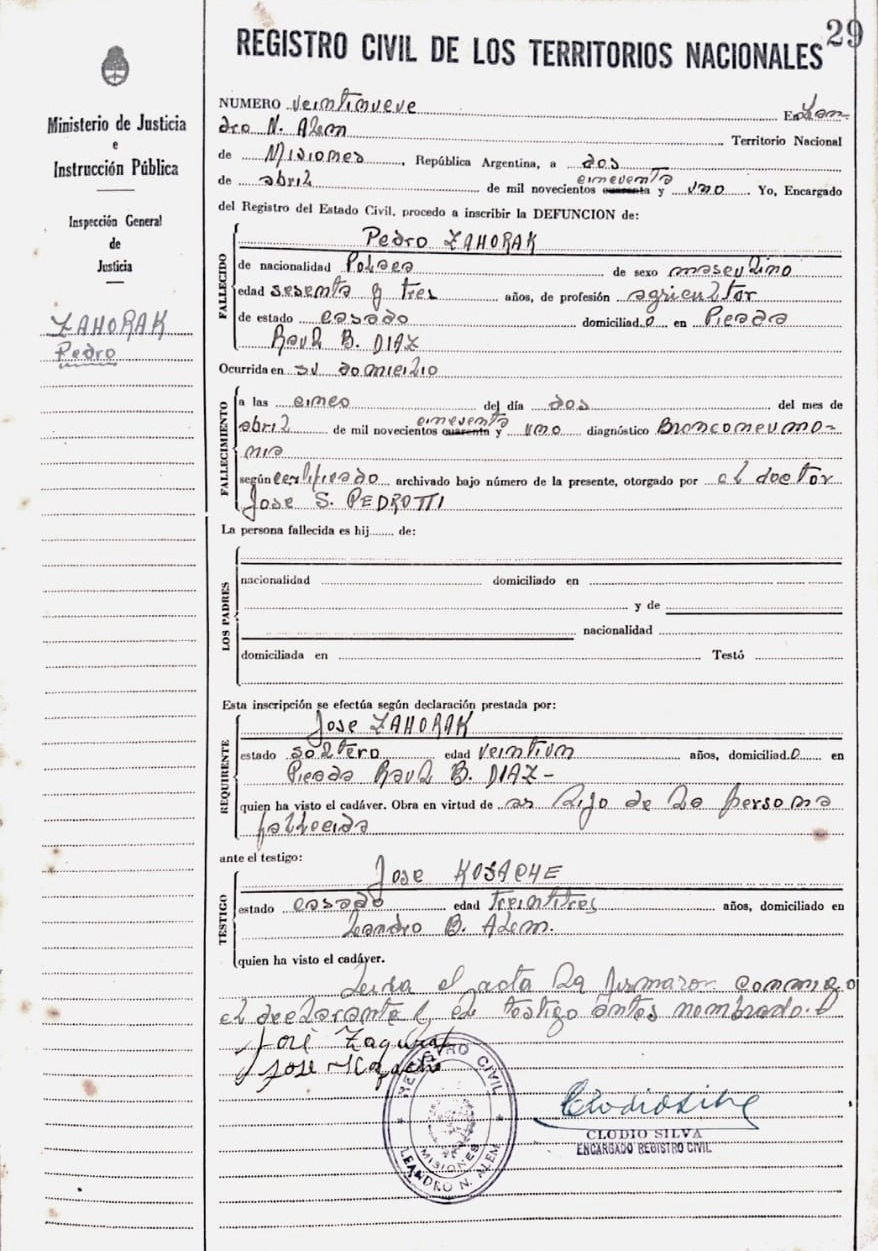 29
REGISTRO CIVIL DE LOS TERRITORIOS NACIONALES
Ministerio de Justicia
e
Instrucción Pública
Inspección General
de
Justicia
ZAHORAK
Pedro
NUMERO veintinueve En Lean-
dro N. Alem Territorio Nacional
de Misiones, República Argentina, a dos
cincuenta
de abril de mil novecientos cuarenta y uno Yo, Encargado
del Registro del Estado Civil, procedo a inscribir la DEFUNCION de:
FALLECIDO
Pedro ZAHORAK
de nacionalidad Polaca de sexo masculino
edad sesenta y tres años, de profesión agricultor
de estado casado domiciliad.o en Picada
Raul B. DIAZ
Ocurrida en su domicilio
FALLECIMIENTO
a las cinco del día dos del mes de
cincuenta
abril de mil novecientos cuarenta y uno diagnóstico Bronconeumo-
nia
según certificado archivado bajo número de la presente, otorgado por el doctor
Jose S. PEDROTTI
La persona fallecida es hij de:
LOS PADRES
nacionalidad domiciliado en
y de
nacionalidad
domiciliada en Testó
Esta inscripción se efectúa según declaración prestada por:
REQUIRENTE
Jose ZAHORAK
estado soltero edad veintiun años, domiciliad.o en
Picada Raul B. DIAZ -
quien ha visto el cadáver. Obra en virtud de ser hijo de la persona
fallecida
ante el testigo:
TESTIGO
Jose KOSACHE
estado casado edad treintitres años, domiciliado en
Leandro B. Alem.
quien ha visto el cadáver.
Leida el acta la firmaron conmigo
el declarante y el testigo antes nombrado.
José
Jose
REGISTRO CIVIL
MISIONES
LEANDRO N. ALEM
CLODIO SILVA
ENCARGADO REGISTRO CIVIL